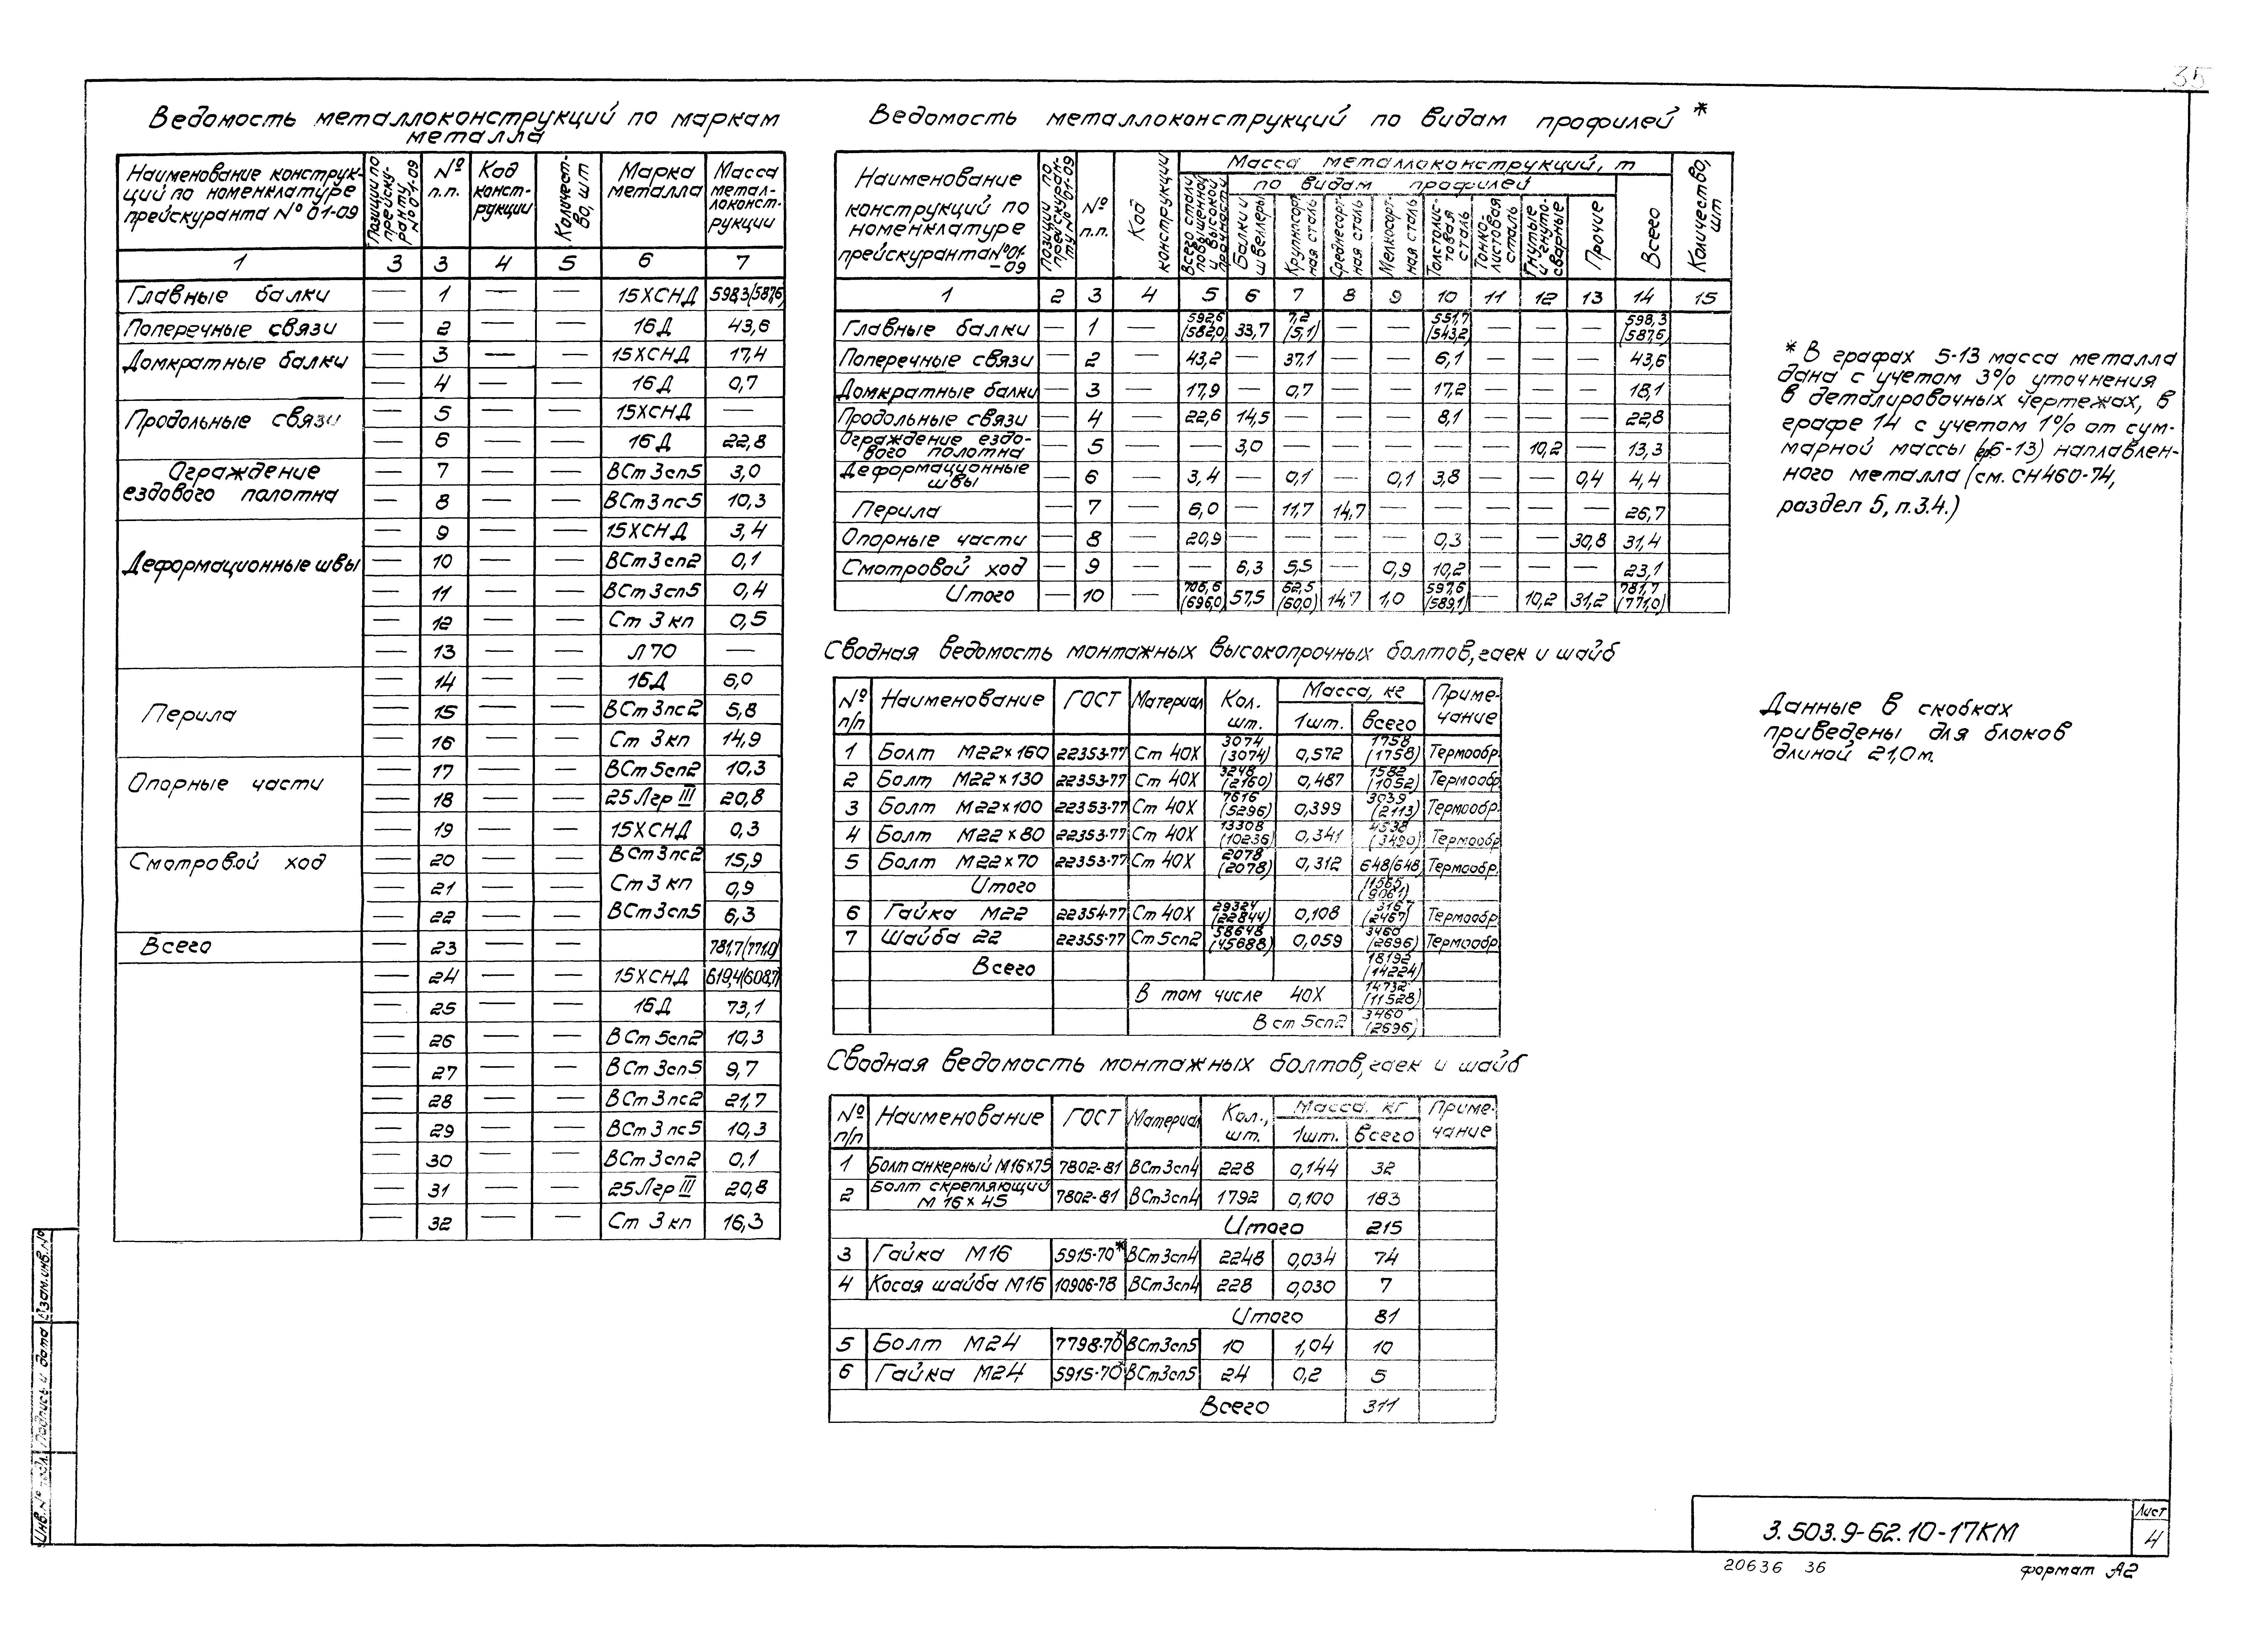 35
Ведомость металлоконструкций по маркам
металла
Наименование конструк-
ций по номенклатуре
прейскуранта № 01-09
Позиции по прейску-ранту № 01-09
№ п.п.
Код конст-рукции
Количест-во, шт
Марка металла
Масса метал-локонст-рукции
1 3 3 4 5 6 7
Главные балки — 1 — — 15ХСНД 598,3(587,6)
Поперечные связи — 2 — — 16Д 43,6
Домкратные балки — 3 — — 15ХСНД 17,4
— 4 — — 16Д 0,7
Продольные связи — 5 — — 15ХСНД —
— 6 — — 16Д 22,8
Ограждение — 7 — — ВСт3сп5 3,0
ездового полотна — 8 — — ВСт3пс5 10,3
— 9 — — 15ХСНД 3,4
Деформационные швы — 10 — — ВСт3сп2 0,1
— 11 — — ВСт3сп5 0,4
— 12 — — Ст 3 кп 0,5
— 13 — — Л70 —
— 14 — — 16Д 6,0
Перила — 15 — — ВСт3пс2 5,8
— 16 — — Ст 3кп 14,9
Опорные части — 17 — — ВСт5сп2 10,3
— 18 — — 25Лгр III 20,8
— 19 — — 15ХСНД 0,3
Смотровой ход — 20 — — ВСт3пс2 15,9
— 21 — — Ст3 кп 0,9
— 22 — — ВСт3сп5 6,3
Всего 23 — — 781,7(771,0)
— 24 — — 15ХСНД 619,4(608,7)
— 25 — — 16Д 73,1
— 26 — — ВСт5сп2 10,3
— 27 — — ВСт3сп5 9,7
— 28 — — ВСт3пс2 21,7
— 29 — — ВСт3пс5 10,3
— 30 — — ВСт3сп2 0,1
— 31 — — 25Лгр III 20,8
— 32 — — Ст 3 кп 16,3
Ведомость металлоконструкций по видам профилей *
Наименование
конструкций по
номенклатуре
прейскуранта №01-09
Позиции по прейскуран-ту № 01-09
№ п.п.
Код конструкции
Масса металлоконструкций, т
Всего стали повышенной и высокой прочности
по видам профилей
Балки и швеллеры
Крупносорт-ная сталь
Среднесорт-ная сталь
Мелкосорт-ная сталь
Толстолис-товая сталь
Тонко-листовая сталь
Гнутые и гнуто-сварные
Прочие
Всего
Количество, шт
1 2 3 4 5 6 7 8 9 10 11 12 13 14 15
Главные балки — 1 — 592,6 (582,0) 33,7 7,2 (5,1) — — 551,7 (543,2) — — — 598,3 (587,6)
Поперечные связи — 2 — 43,2 — 37,1 — — 6,1 — — — 43,6
Домкратные балки — 3 — 17,9 — 0,7 — — 17,2 — — — 18,1
Продольные связи — 4 — 22,6 14,5 — — — 8,1 — — — 22,8
Ограждение ездо-
вого полотна — 5 — — 3,0 — — — — — 10,2 — 13,3
Деформационные
швы — 6 — 3,4 — 0,1 — 0,1 3,8 — — 0,4 4,4
Перила — 7 — 6,0 — 11,7 14,7 — — — — — 26,7
Опорные части — 8 — 20,9 — — — — 0,3 — — 30,8 31,4
Смотровой ход — 9 — — 6,3 5,5 — 0,9 10,2 — — — 23,1
Итого — 10 — 706,6 (696,0) 57,5 62,5 (60,0) 14,7 1,0 597,6 (589,1) — 10,2 31,2 781,7 (771,0)
* В графах 5-13 масса металла
дана с учетом 3% уточнения
в деталировочных чертежах, в
графе 14 с учетом 1% от сум-
марной массы (гр6-13) наплавлен-
ного металла (см. СН460-74,
раздел 5, п.3.4.)
Сводная ведомость монтажных высокопрочных болтов, гаек и шайб
№ п/п Наименование ГОСТ Материал Кол. шт. Масса, кг Приме-чание
1шт. всего
1 Болт М22×160 22353-77 Ст 40Х 3074 (3074) 0,572 1758 (1758) Термообр.
2 Болт М22×130 22353-77 Ст 40Х 3248 (2160) 0,487 1582 (1052) Термообр.
3 Болт М22×100 22353-77 Ст 40Х 7616 (5296) 0,399 3039 (2113) Термообр.
4 Болт М22×80 22353-77 Ст 40Х 13308 (10236) 0,341 4538 (3490) Термообр.
5 Болт М22×70 22353-77 Ст 40Х 2078 (2078) 0,312 648(648) Термообр.
Итого 11565 (9061)
6 Гайка М22 22354-77 Ст 40Х 29324 (22844) 0,108 3167 (2467) Термообр.
7 Шайба 22 22355-77 Ст5сп2 58648 (45688) 0,059 3460 (2696) Термообр.
Всего 18192 (14224)
В том числе 40Х 14732 (11528)
Вст 5сп2 3460 (2696)
Данные в скобках
приведены для блоков
длиной 21,0м.
Сводная ведомость монтажных болтов, гаек и шайб
№ п/п Наименование ГОСТ Материал Кол., шт. Масса, кг Приме-чание
1шт. всего
1 Болт анкерный М16×75 7802-81 ВСт3сп4 228 0,144 32
2 Болт скрепляющий
М 16×45 7802-81 ВСт3сп4 1792 0,100 183
Итого 215
3 Гайка М16 5915-70* ВСт3сп4 2248 0,034 74
4 Косая шайба М16 10906-78 ВСт3сп4 228 0,030 7
Итого 81
5 Болт М24 7798-70* ВСт3сп5 10 1,04 10
6 Гайка М24 5915-70* ВСт3сп5 24 0,2 5
Всего 311
Инв.№ подл. Подпись и дата Взам.инв.№
3.503.9-62.10-17КМ
Лист
4
20636 36
формат А2